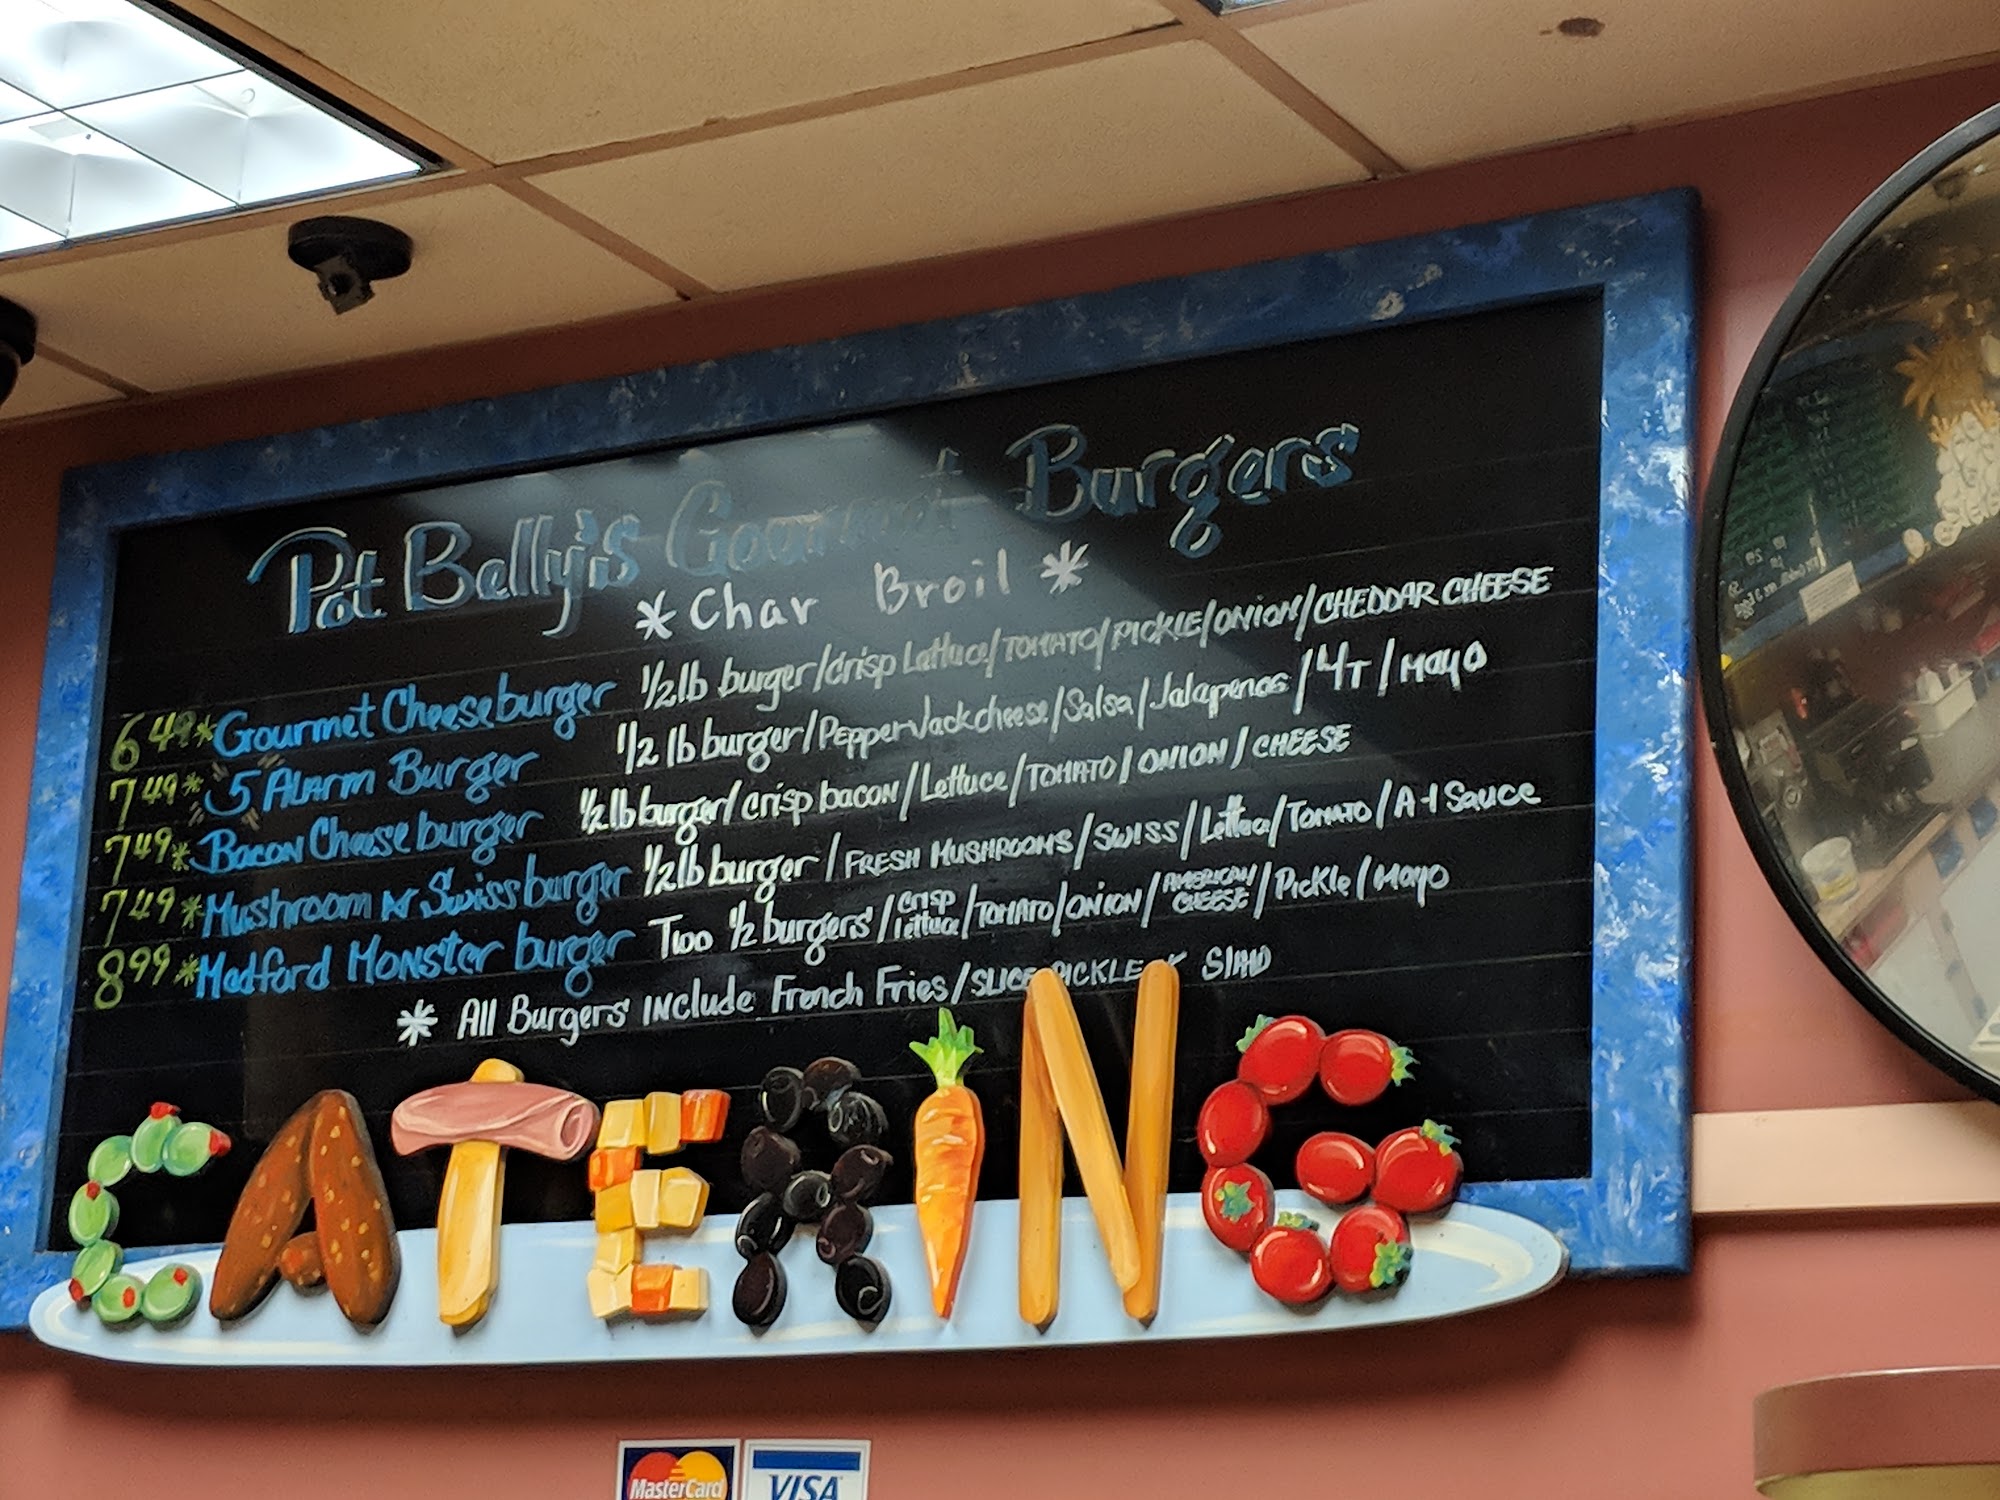 Pot Belly's Gourmet Burgers
*Char Broil *
6 49 * Gourmet Cheeseburger 1/2 lb burger/crisp Lettuce/TOMATO/PICKLE/ONION/CHEDDAR CHEESE
7 49 * "5 Alarm Burger" 1/2 lb burger/Pepper Jack cheese/Salsa/Jalapenos/L/T/MAYO
7 49 * Bacon Cheeseburger 1/2 lb burger/crisp bacon/Lettuce/TOMATO/ONION/CHEESE
7 49 * Mushroom Swissburger 1/2 lb burger/FRESH MUSHROOMS/SWISS/Lettuce/TOMATO/A-1 Sauce
8 99 * Medford Monster burger Two 1/2 burgers/crisp lettuce/TOMATO/ONION/AMERICAN CHEESE/Pickle/Mayo
* All Burgers INclude French Fries/SLICE PICKLE Slaw
CATERING
MasterCard VISA